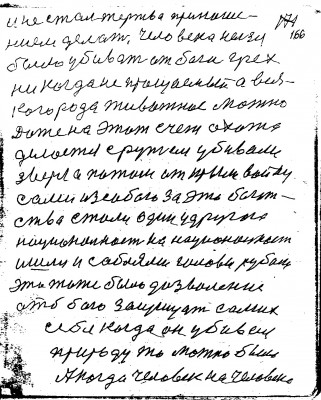 и не стал жертва приноше-
нием делат, человека нелзи
166
было убиват от бога грех
никогда не прощаемый а вся-
кого рода животное можно
даже на этот счет охота
делается с ружем убивали
зверя а потом открыли войну
сами из себя за эти богат-
ства стали один у другого
национальност на национальност
шли и саблями головы рубали
это тоже было дозволение
от бога защищат самих
себя когда он убивал
природу то можно было
А когда человек на человека